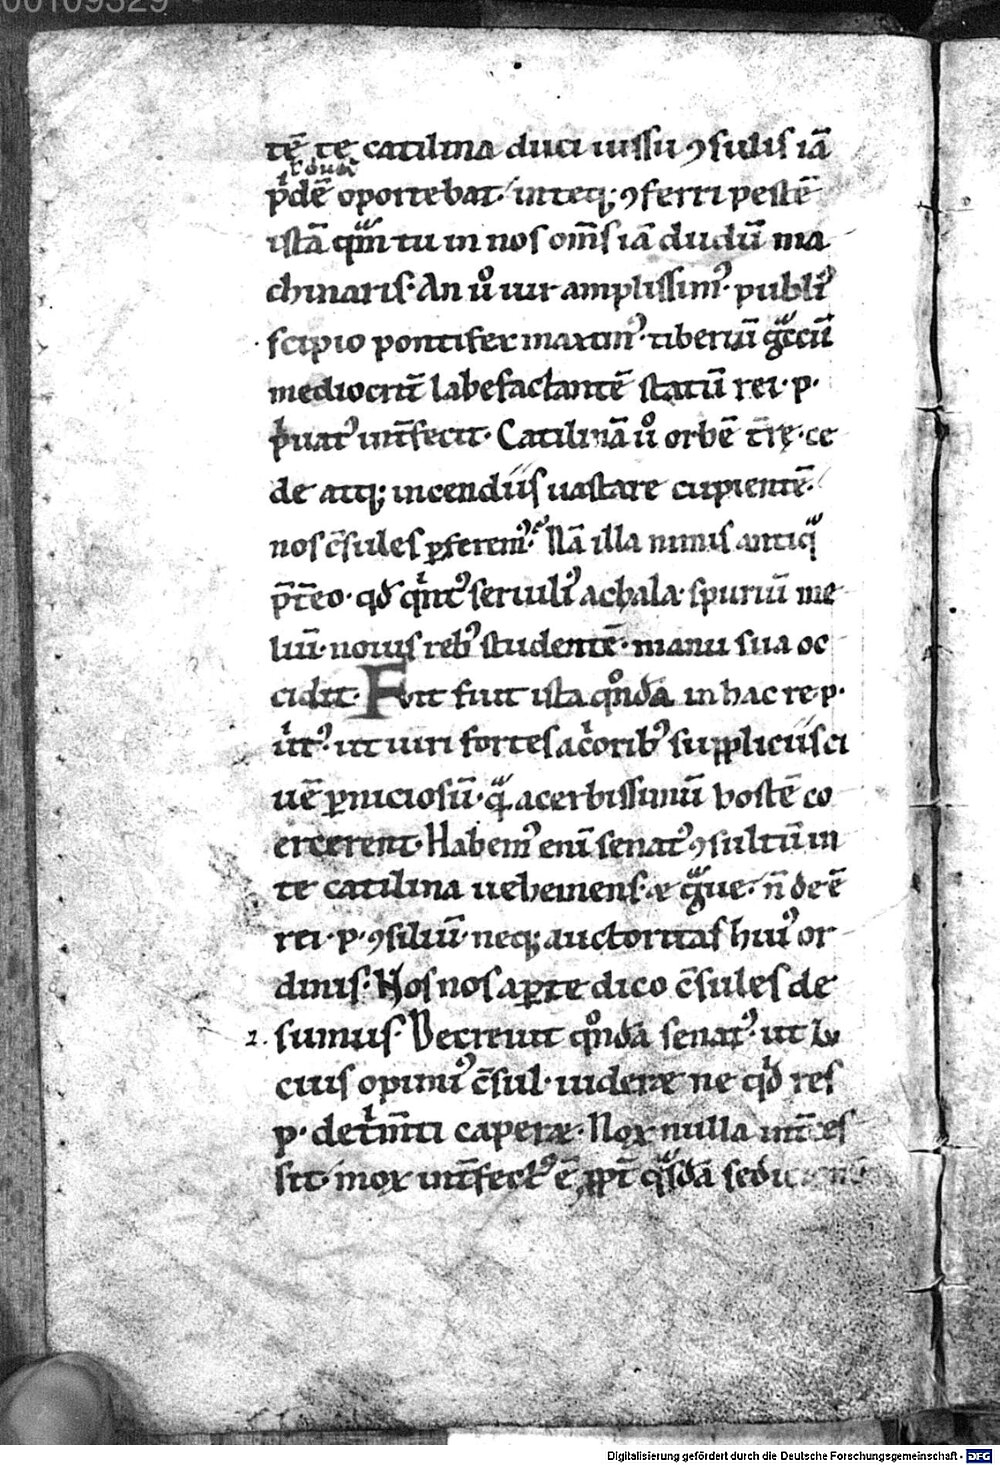 00109329
tē te catilina duci iussu ꝯsulis iā
ł dudū
pͥdē oportebat. in teq; ꝯferri pestē
istā qͣm tu in nos om̄s iā dudū ma
chinaris. An u͛o uir amplissimꝰ. publiꝰ
scipio pontifex maximꝰ. tiberiū gͣccū
mediocrit̄ labefactantē statū rei. p.
pͥuatꝰ int̄fecit. Catilinā u͛o orbē t̄rę. ce
de atq; incendiis uastare cupientē.
nos c̄sules ꝑferemꝰ. Nā illa nimis antiqͣ
p̄t̄eo. qđ qͥntꝰ seruiliꝰ achala. spuriū me
liū. nouis rebꝰ studentē. manu sua oc
cidit. Fuit fuit ista qͦndā in hac re. p.
uͥrtꝰ. ut uiri fortes acͥoribꝰ suppliciis ci
uē ꝑniciosū. qͣ acerbissimū hostē co
ercerent. Habemꝰ enī senatꝰ ꝯsultū in
te catilina uehemens. & gͣue. n̄ deē
rei. p. ꝯsiliū. neq; auctoritas huiꝰ or
dinis. Nos nos aꝑte dico c̄sules de
sumus. Decreuit qͦndā senatꝰ. ut lu
cius opimiꝰ c̄sul. uideret ne qͥd res
p. det̄m̄ti caperet. Nox nulla int̄ces
sit. mox int̄fectꝰ ē ꝓpt̄ qͣsdā
Digitalisierung gefördert durch die Deutsche Forschungsgemeinschaft - DFG